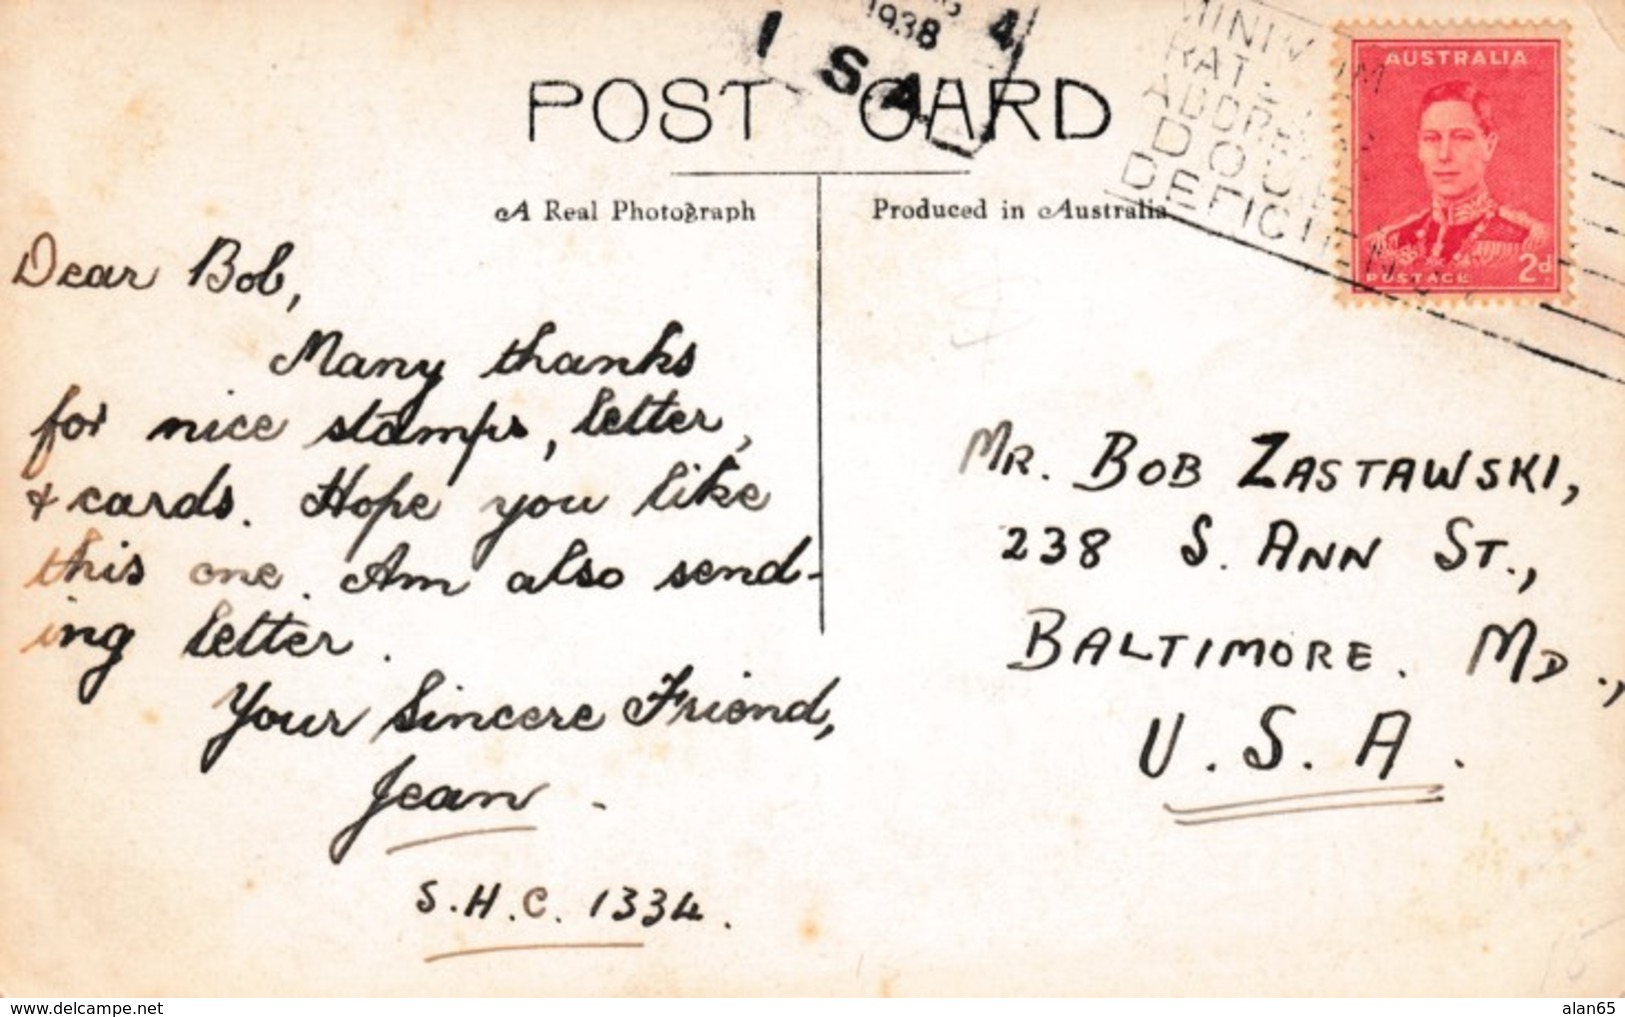 1938 4
I S.A.
MINIMUM
RATE
ADDRESS
DOUBLE
DEFICIENCY
AUSTRALIA
POSTAGE 2d.
POST CARD
A Real Photograph
Produced in Australia
Dear Bob,
Many thanks
for nice stamps, letter,
& cards. Hope you like
this one. Am also send-
ing letter.
Your Sincere Friend,
Jean.
S.H.C. 1334.
MR. BOB ZASTAWSKI,
238 S. ANN ST.,
BALTIMORE. MD.,
U.S.A.
15
delcampe.net
alan65